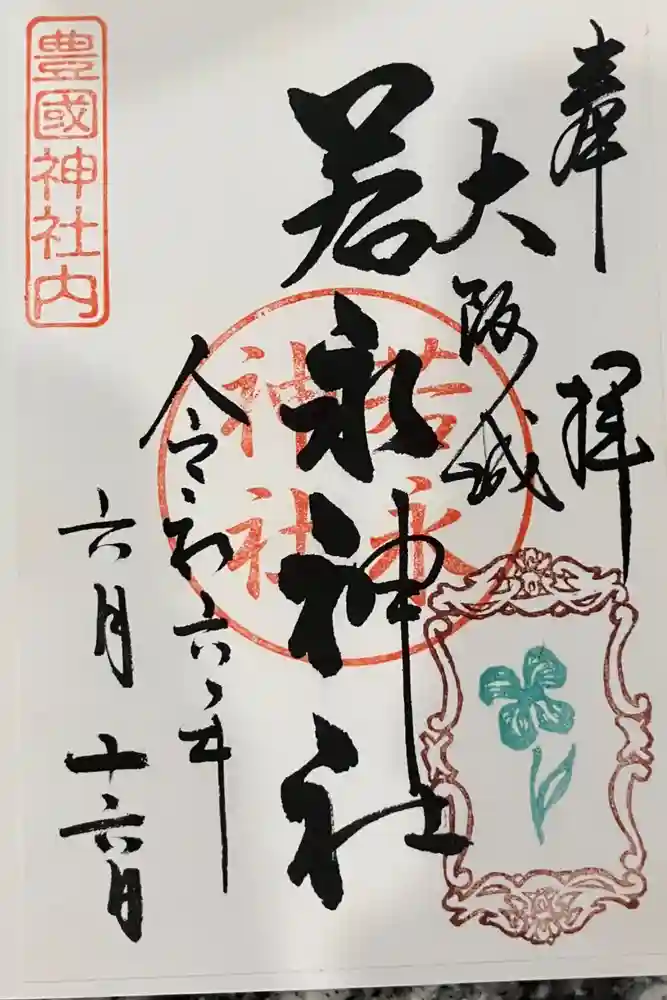 奉拝
大阪城
若永神社
令和六年
六月十六日
豊國神社内
若永
神社